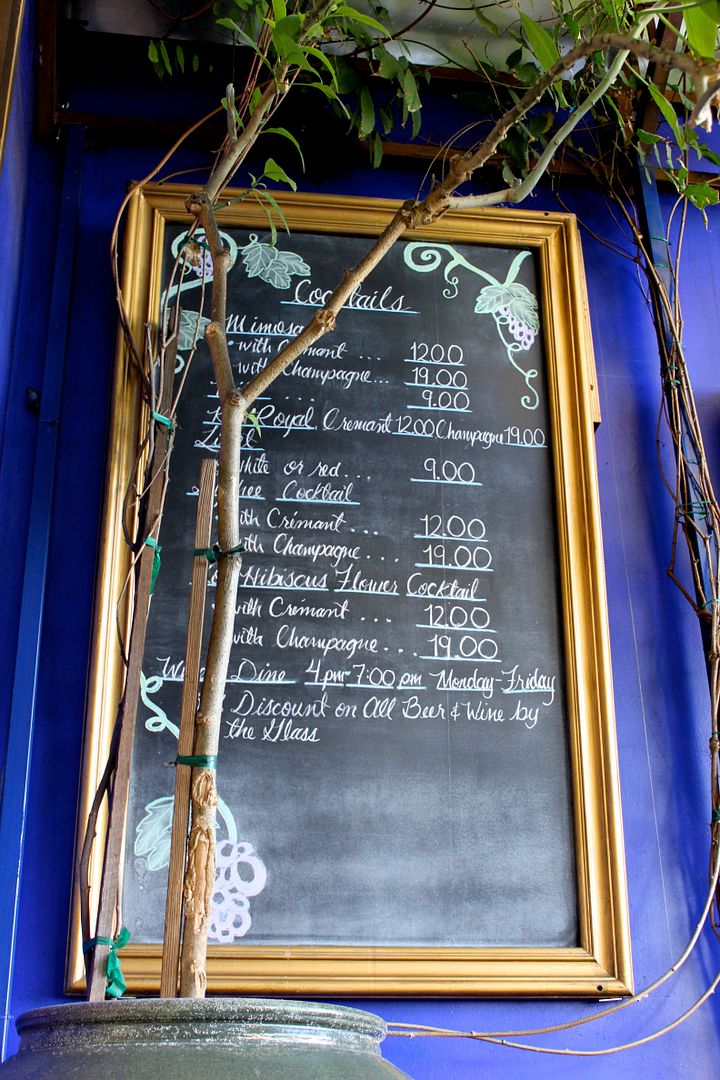 Cocktails
Mimosa
with Crémant ... 12.00
with Champagne... 19.00
.... 9.00
Royal Cremant 12.00 Champagne 19.00
white or red... 9.00
Cocktail
with Crémant ... 12.00
with Champagne.... 19.00
Hibiscus Flower Cocktail
with Crémant ... 12.00
with Champagne... 19.00
Dine 4pm-7:00 pm Monday-Friday
Discount on All Beer & Wine by
the Glass